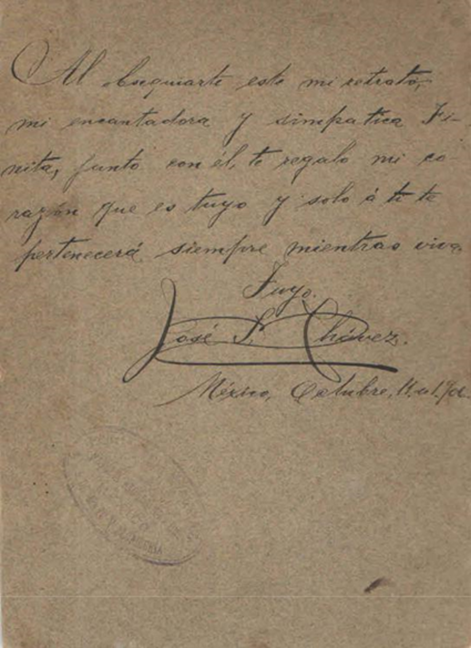 Al obsequiarte este mi retrato,
mi encantadora y simpatica Fi-
nita, junto con el, te regalo mi co-
razón que es tuyo y solo á ti te
pertenecerá siempre mientras viva.
Tuyo.
José Chávez.
México, Octubre,